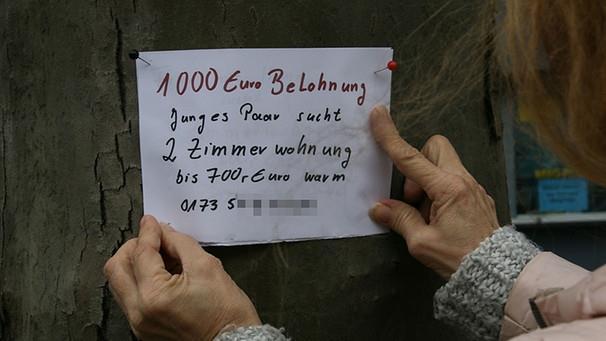 1000 Euro Belohnung
Junges Paar sucht
2 Zimmerwohnung
bis 700,- Euro warm
0173 5